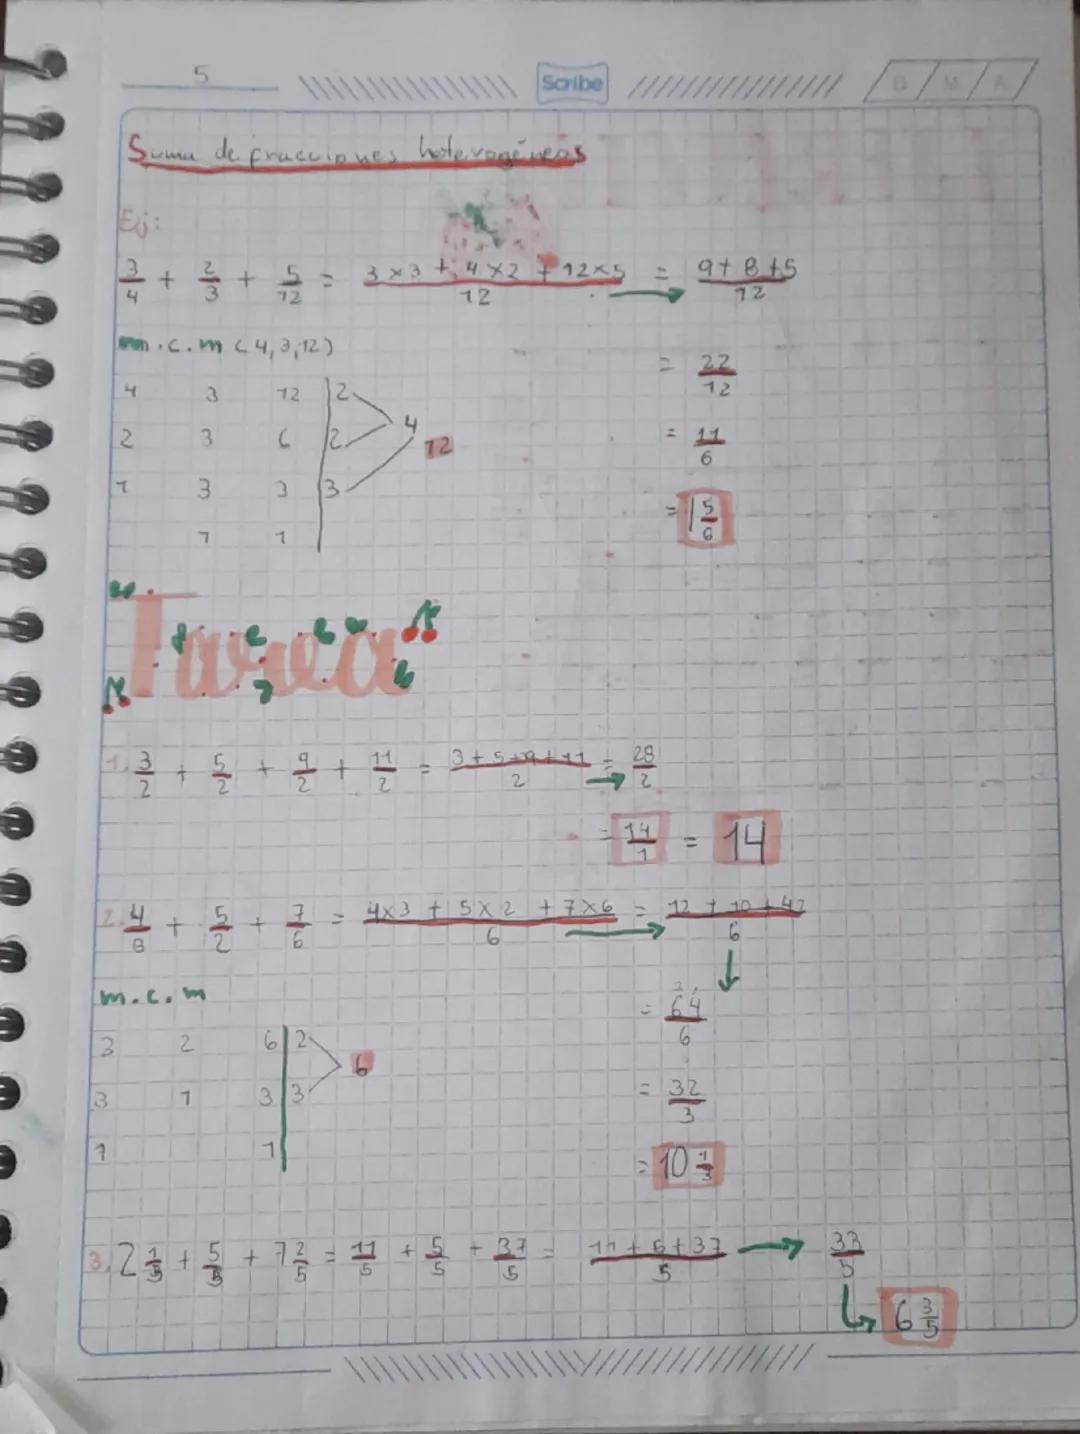 5
Scribe
D M A
Suma de fracciones heterogéneas
Ej:
3/4 + 2/3 + 5/12 = 3×3 + 4×2 + 12×5 / 12 = 9+8+5 / 12
m.c.m (4,3,12)
= 22/12
4 3 12 | 2
4
2 3 6 | 2
12
= 11/6
1 3 3 | 3
= 1 5/6
1 1
Tarea
1. 3/2 + 5/2 + 9/2 + 11/2 = 3+5+9+11 / 2 = 28/2
= 14/1 = 14
2. 4/3 + 5/2 + 7/6 = 4×3 + 5×2 + 7×6 / 6 = 12+10+42 / 6
m.c.m
= 64/6
3 2 6 | 2
6
3 1 3 | 3
= 32/3
1 1
= 10 1/3
3. 2 1/5 + 5/5 + 7 2/5 = 11/5 + 5/5 + 37/5 = 11+5+37 / 5 → 33/5
6 3/5